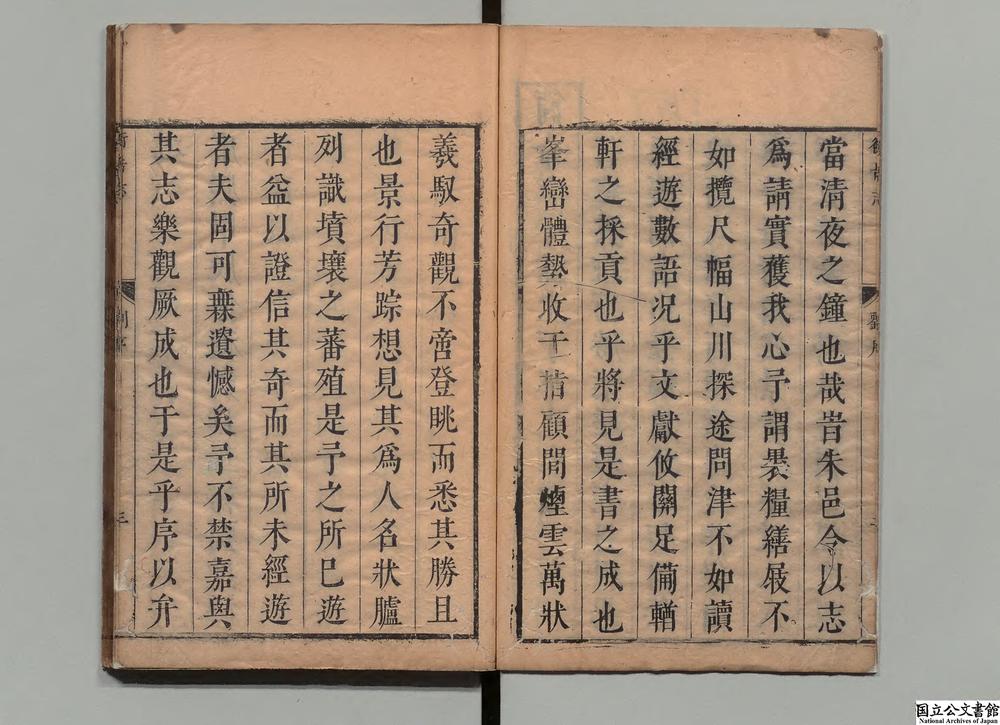 當清夜之鐘也哉昔朱邑令以志
爲請實獲我心予謂褁糧繕屐不
如攬尺幅山川探途問津不如讀
經遊數語况乎文獻攸關足備輶
軒之採貢也乎將見是書之成也
峯巒體勢收于指顧間煙雲萬狀
羲馭奇觀不啻登眺而悉其勝且
也景行芳踪想見其爲人名狀臚
列識墳壤之蕃殖是予之所已遊
者益以證信其奇而其所未經遊
者夫固可無遺憾矣予不禁嘉與
其志樂觀厥成也于是乎序以弁
三
国立公文書館
National Archives of Japan